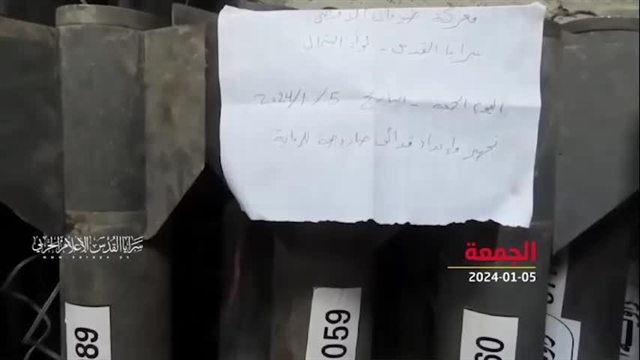 معركة طوفان الأقصى
سرايا القدس - لواء الشمال
اليوم الجمعة - التاريخ 5/1/2024
تجهيز وإعداد قذائف صاروخية للرماية
سرايا القدس الإعلام الحربي
الجمعة
2024-01-05
89
059
60